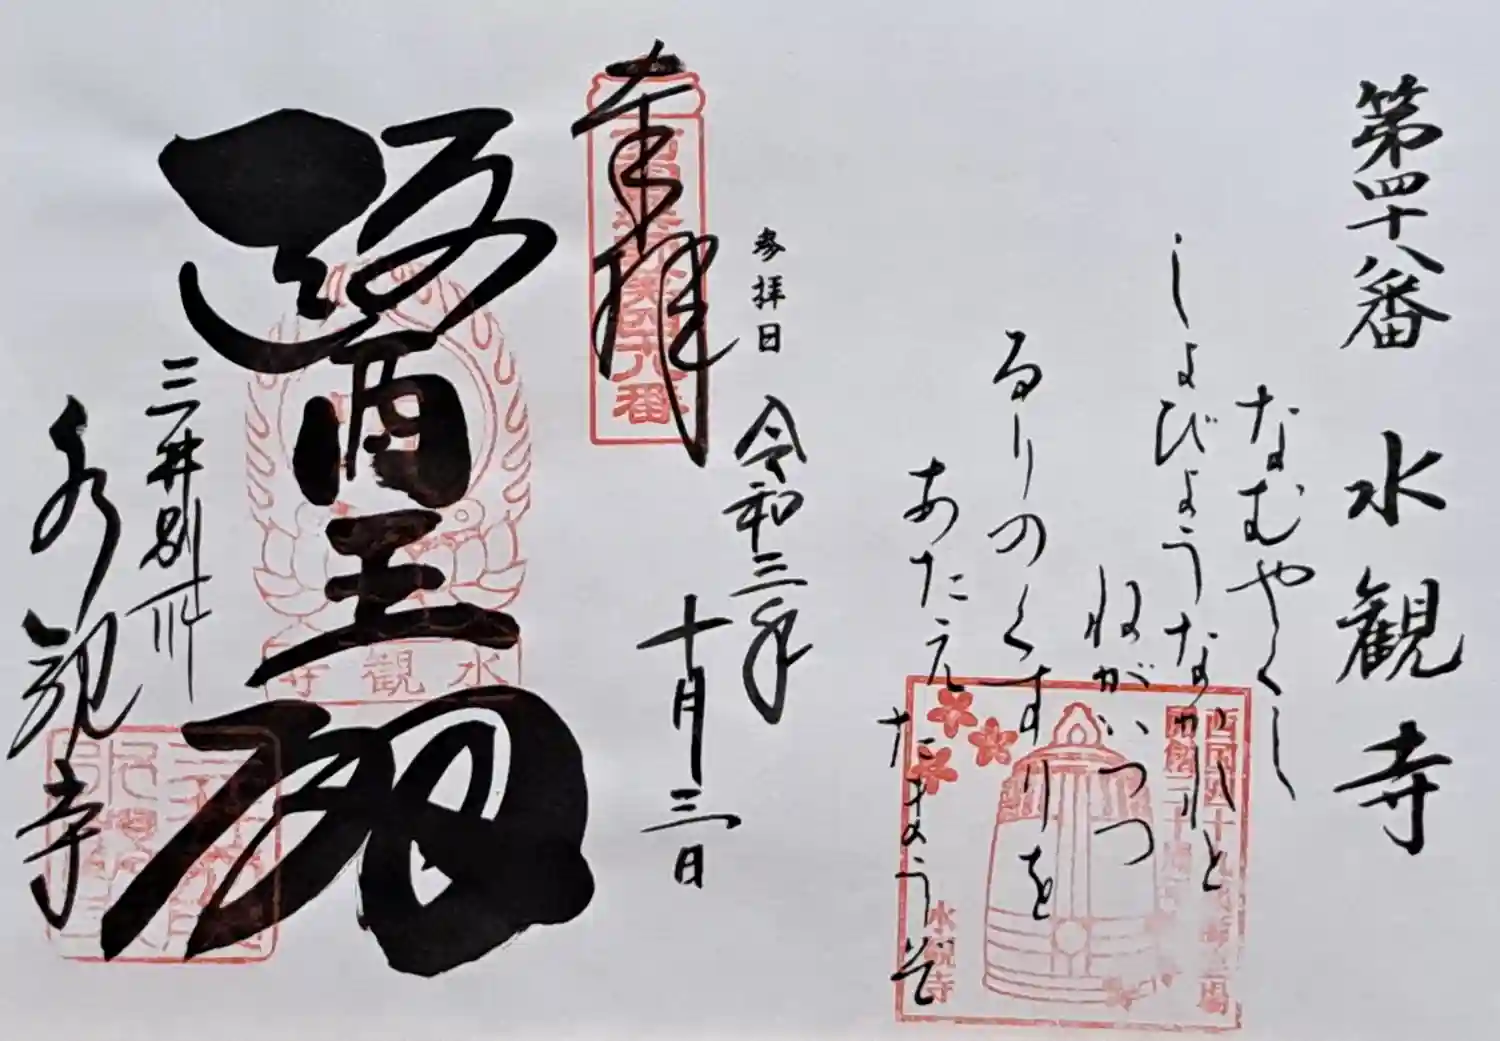 第四十八番 水観寺
なむやくし
しよびようなかれと
ねがいつつ
るりのくすりを
あたえたまうぞ
参拝日
令和三年
十月三日
奉拝
醫王殿
三井別所
水観寺
水観寺
水観寺